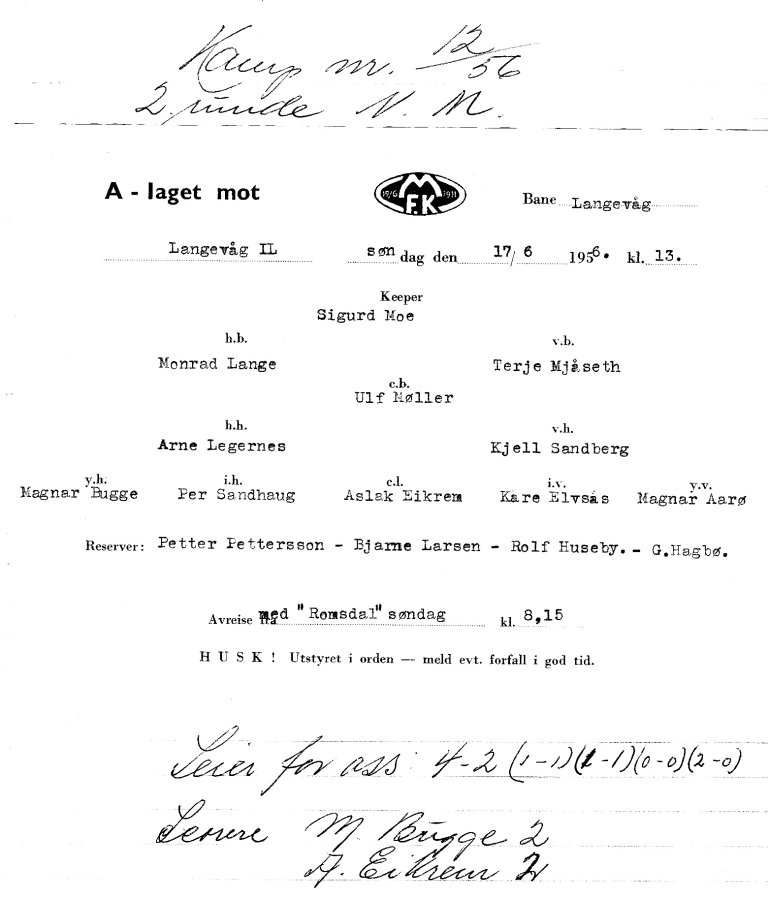 Kamp nr. 12/56
2 runde N. M.
A - laget mot
1916 M F.K 1911
Bane Langevåg
Langevåg IL søn dag den 17/6 1956. kl. 13.
Keeper
Sigurd Moe
h.b. v.b.
Monrad Lange Terje Mjåseth
c.b.
Ulf Møller
h.h. v.h.
Arne Legernes Kjell Sandberg
y.h. i.h. c.l. i.v. y.v.
Magnar Bugge Per Sandhaug Aslak Eikrem Kåre Elvsås Magnar Aarø
Reserver: Petter Pettersson - Bjarne Larsen - Rolf Huseby. - G.Hagbø.
Avreise med "Romsdal" søndag kl. 8,15
HUSK! Utstyret i orden — meld evt. forfall i god tid.
Seier for oss: 4-2 (1-1)(1-1)(0-0)(2-0)
M. Bugge 2
A. Eikrem 2